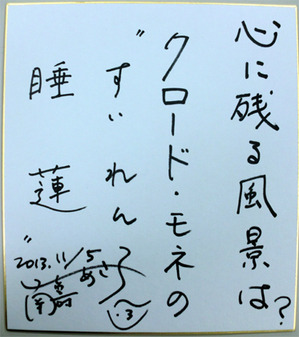 心に残る風景は?
クロード・モネの
"すいれん
睡蓮"
2013.11/5